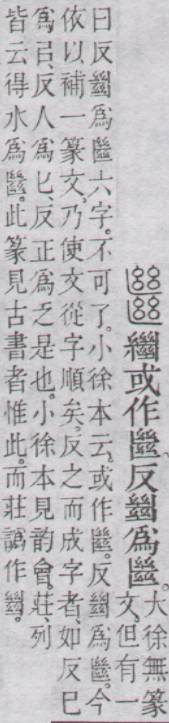 㡭繼或作㡭。反𢇍爲㡭。
大徐無篆
文。但有一
曰反𢇍爲㡭六字。不可了。小徐本云。或作㡭。反𢇍爲㡭。今
依以補一篆文。乃使文從字順矣。反之而成字者、如反巳
爲㠯、反人爲匕、反正爲乏是也。小徐本見韵會。莊、列
皆云得水爲㡭。此篆見古書者惟此。而莊譌作𢇍。